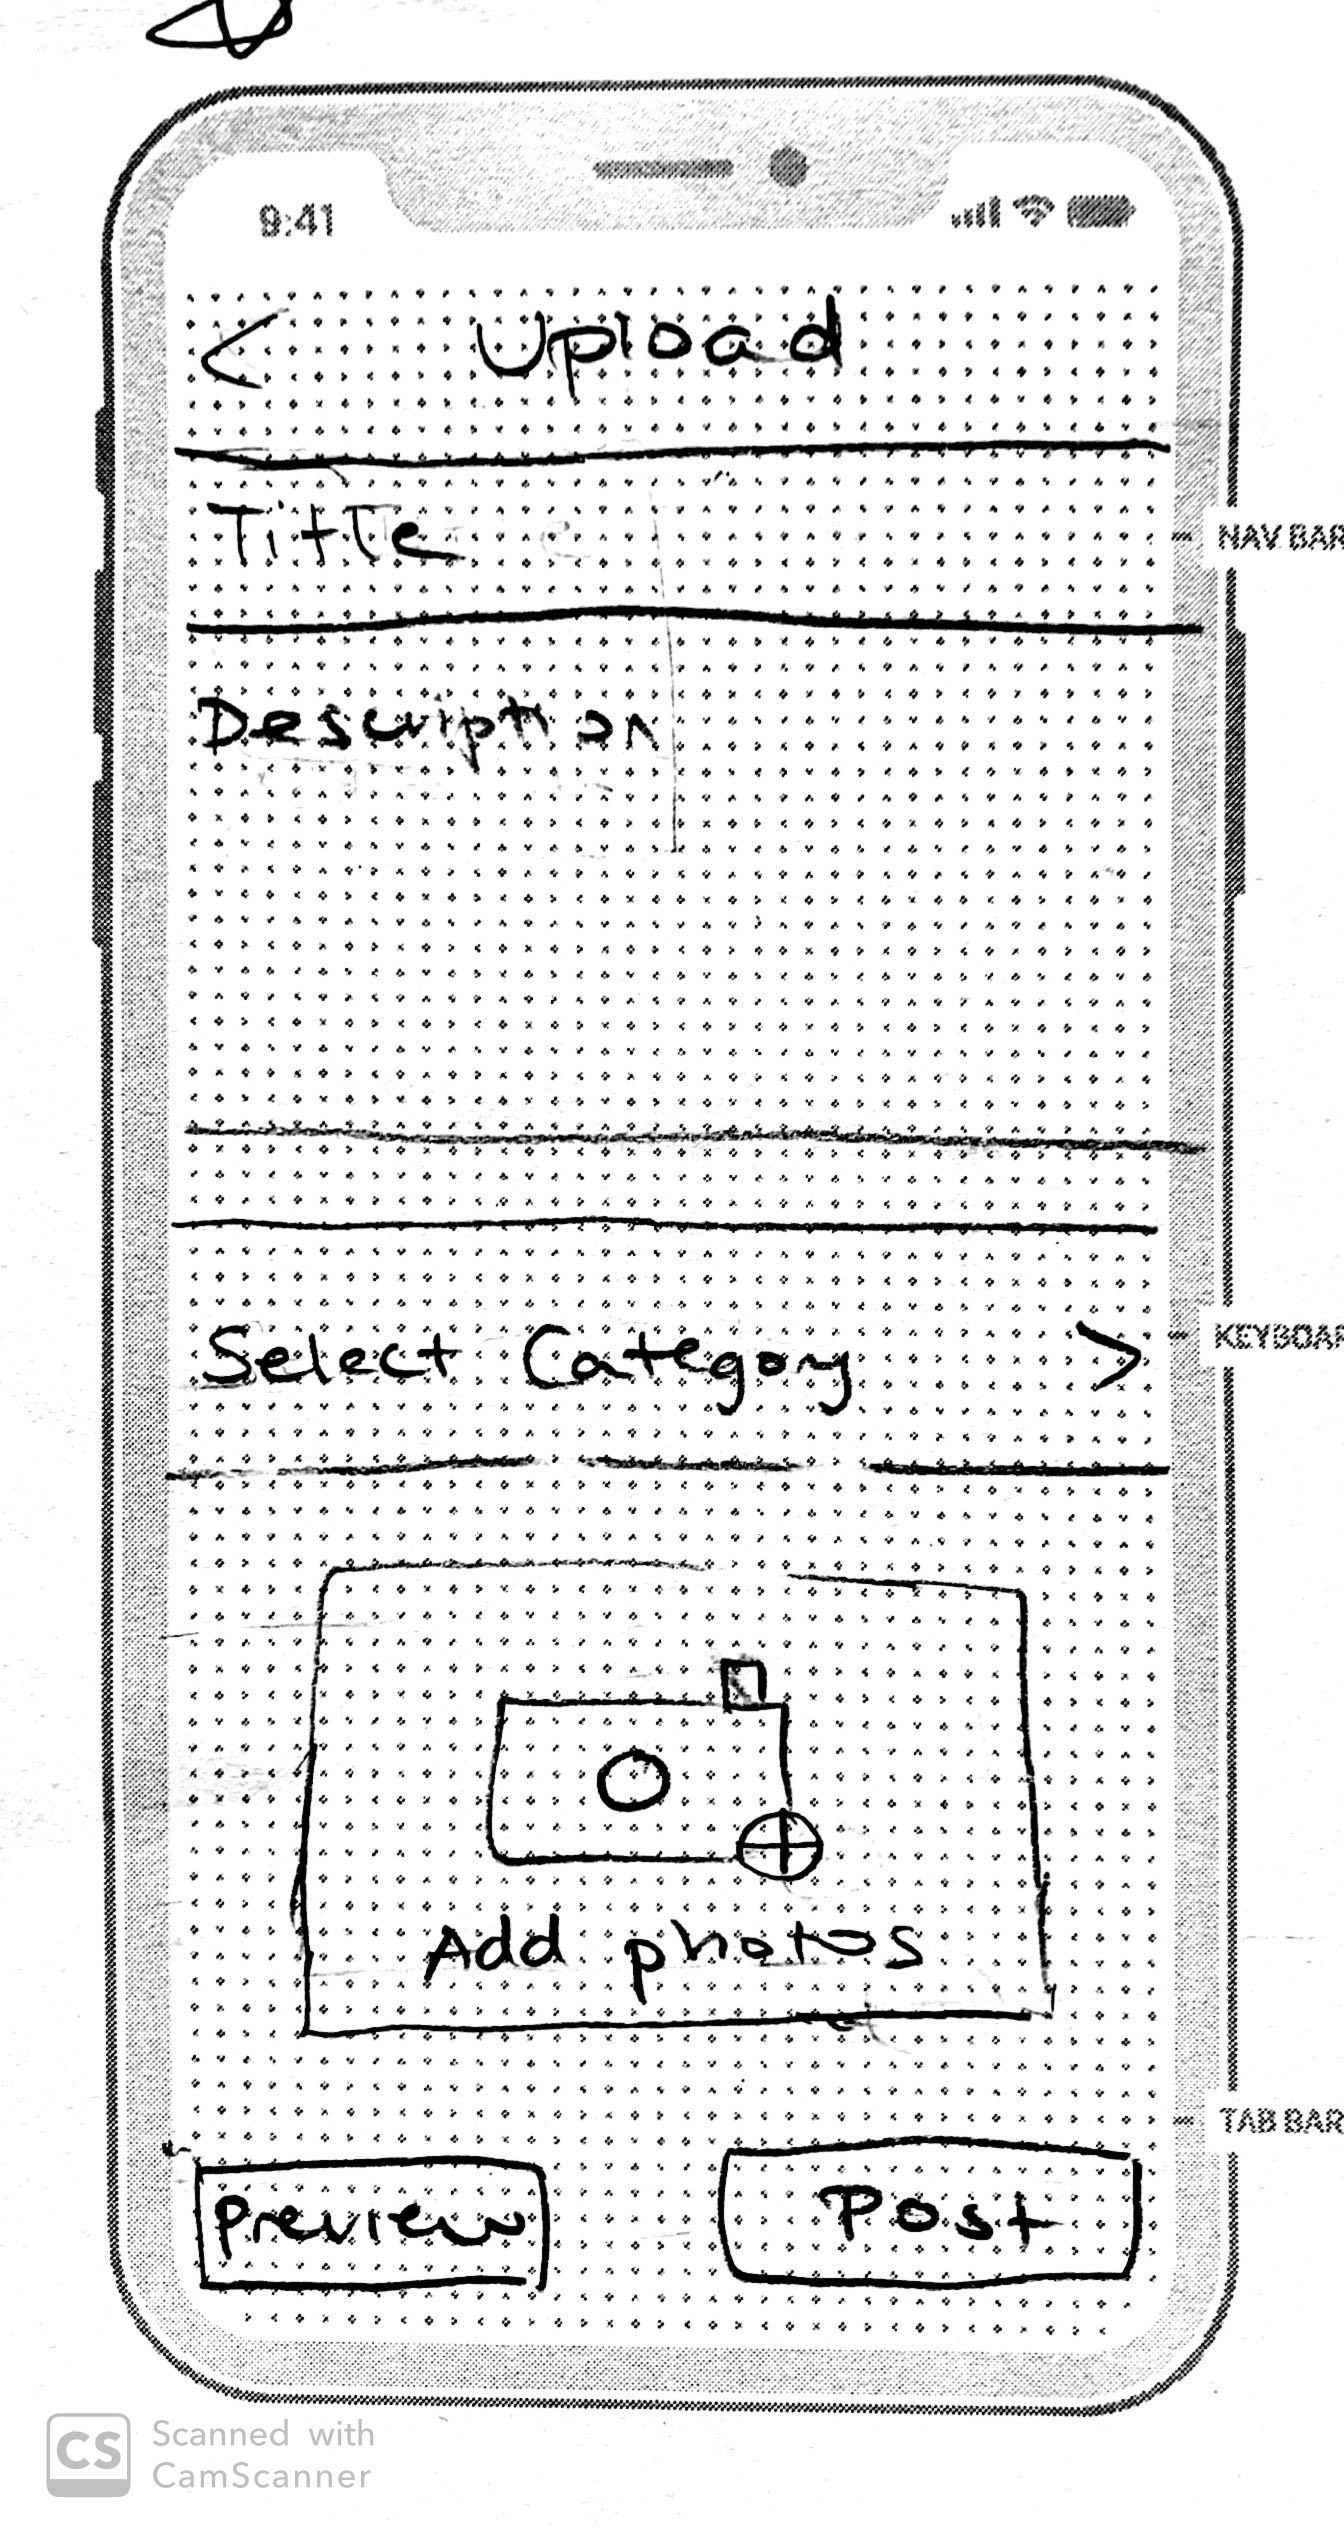 9:41
< Upload
Title
NAV BAR
Description
KEYBOAR
Select Category >
Add photos
TAB BAR
Preview
Post
CS Scanned with
CamScanner